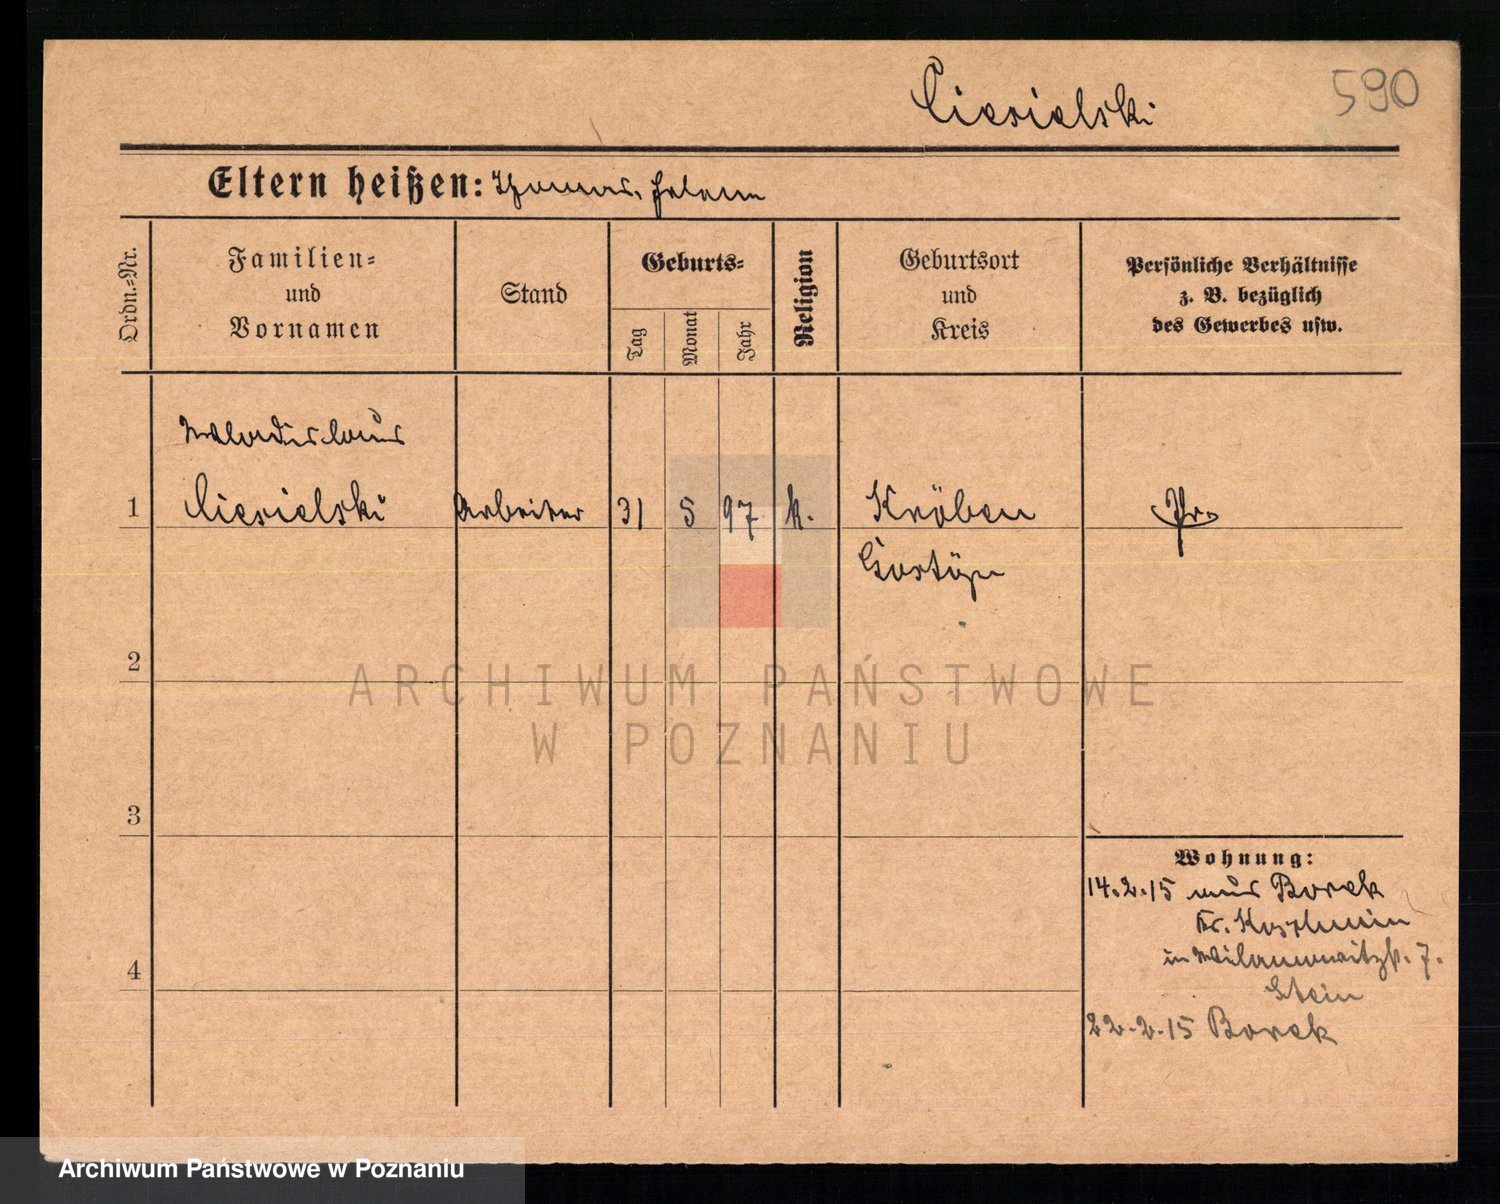 Ciesielski
590
Eltern heißen: Thomas, Helene
Ordn.-Nr.
Familien-
und
Vornamen
Stand
Geburts-
Tag
Monat
Jahr
Religion
Geburtsort
und
Kreis
Persönliche Verhältnisse
z. B. bezüglich
des Gewerbes usw.
Wladislaus
1 Ciesielski Arbeiter 31 5 97 k. Kröben Pr.
Gostÿn
2
ARCHIWUM PAŃSTWOWE
W POZNANIU
3
Wohnung:
14.2.15 aus Borek
Kr. Koschmin
4
7.
Stein
22.2.15 Borek
Archiwum Państwowe w Poznaniu